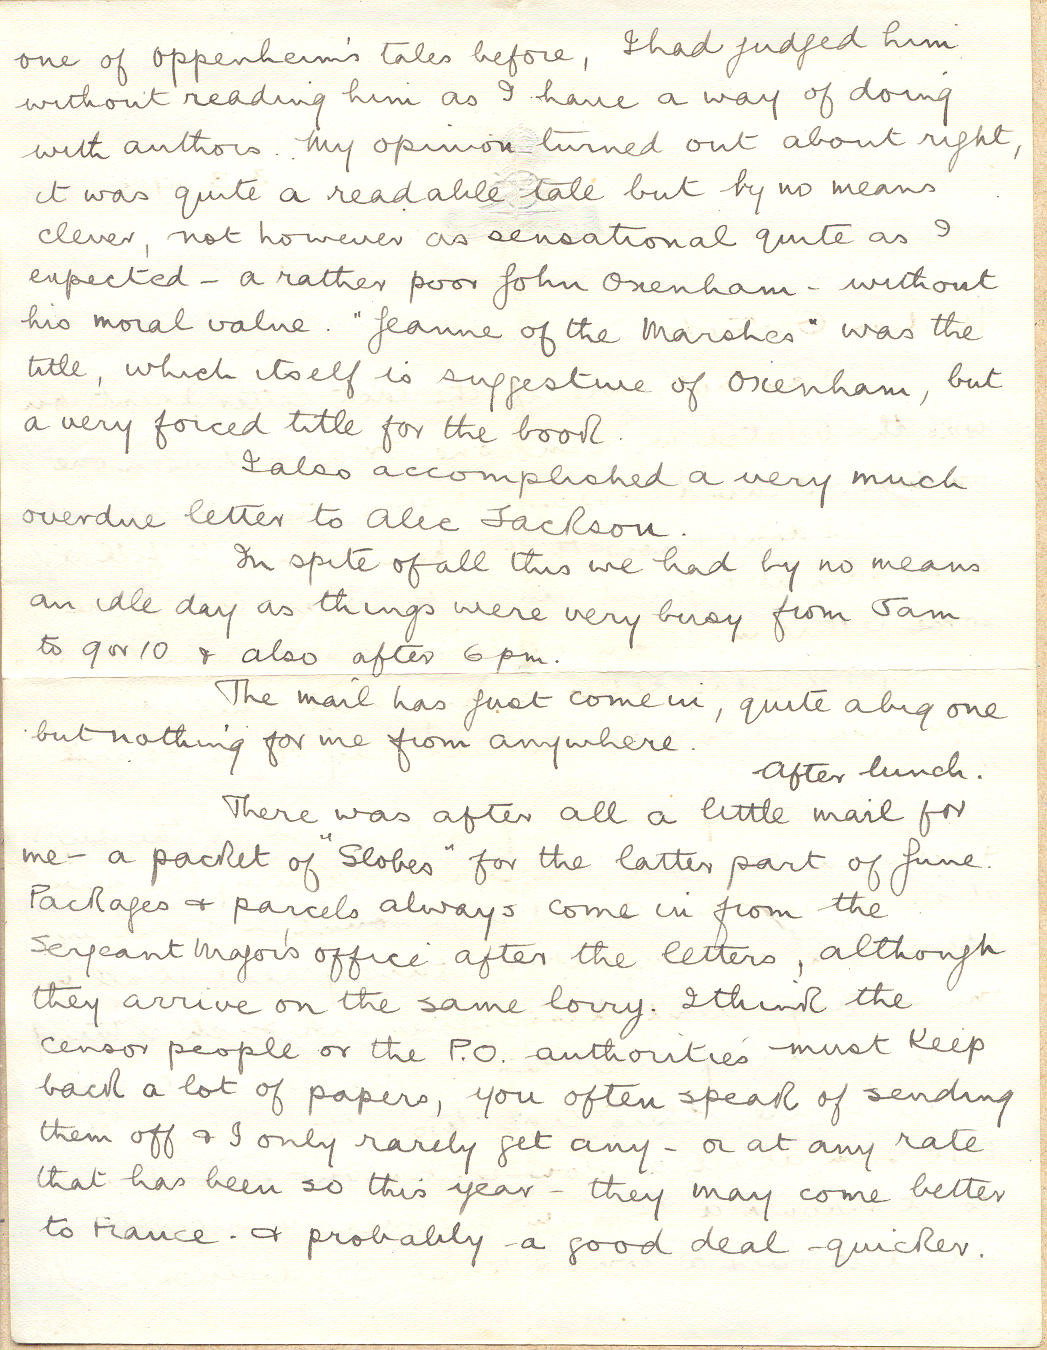 one of Oppenheim's tales before, I had judged him
without reading him as I have a way of doing
with authors. My opinion turned out about right,
it was quite a readable tale but by no means
clever, not however as sensational quite as I
expected – a rather poor John Oxenham – without
his moral value. "Jeanne of the Marshes" was the
title, which itself is suggestive of Oxenham, but
a very forced title for the book.
I also accomplished a very much
overdue letter to Alec Jackson.
In spite of all this we had by no means
an idle day as things were very busy from 5am
to 9 or 10 & also after 6 pm.
The mail has just come in, quite a big one
but nothing for me from anywhere.
After lunch.
There was after all a little mail for
me – a packet of "Globes" for the latter part of June.
Packages & parcels always come in from the
Sergeant Major's office after the letters, although
they arrive on the same lorry. I think the
censor people or the P.O. authorities must keep
back a lot of papers, you often speak of sending
them off & I only rarely get any – or at any rate
that has been so this year – they may come better
to France. & probably a good deal quicker.